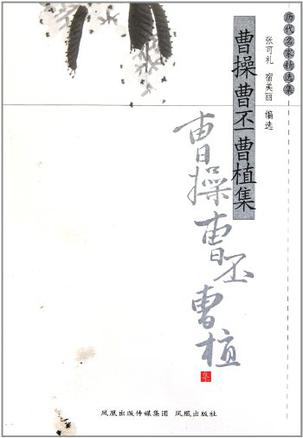 历代名家精选集
曹操曹丕曹植集
张可礼 宿美丽 编选
曹操曹丕曹植
集
凤凰出版传媒集团 凤凰出版社